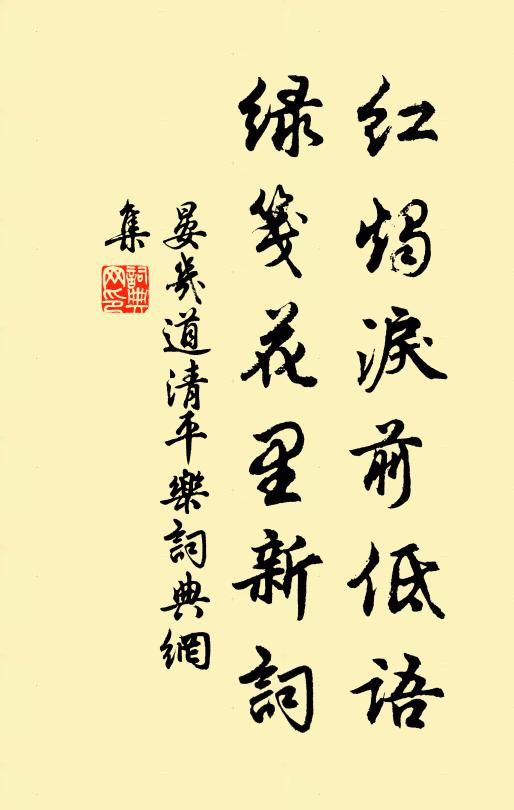 红烛淚前低语
绿笺花里新詞
晏幾道清平樂詞典網
集
詞典网印